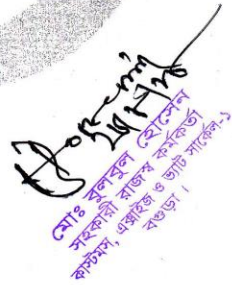 মোঃ বুলবুল হোসেন
সহকারী রাজস্ব কর্মকর্তা
কাস্টমস, এক্সাইজ ও ভ্যাট সার্কেল-১
বগুড়া।